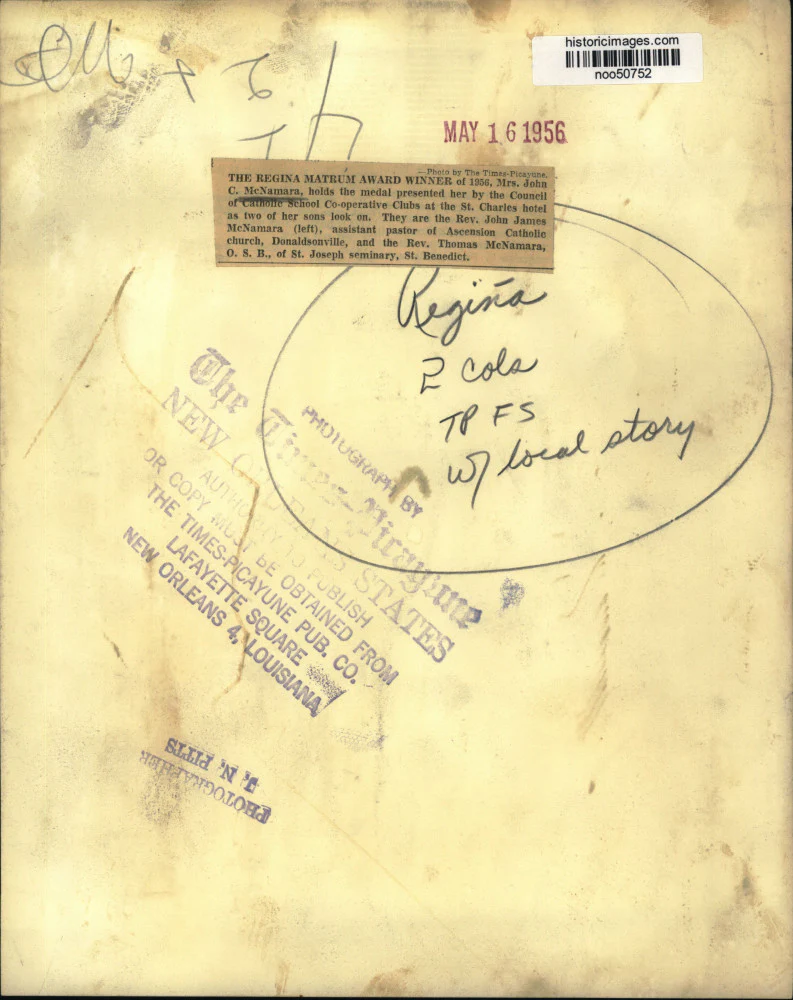 historicimages.com
noo50752
MAY 16 1956
—Photo by The Times-Picayune.
THE REGINA MATRUM AWARD WINNER of 1956, Mrs. John
C. McNamara, holds the medal presented her by the Council
of Catholic School Co-operative Clubs at the St. Charles hotel
as two of her sons look on. They are the Rev. John James
McNamara (left), assistant pastor of Ascension Catholic
church, Donaldsonville, and the Rev. Thomas McNamara,
O. S. B., of St. Joseph seminary, St. Benedict.
Regina
2 cols
TP FS
w/ local story
PHOTOGRAPH BY
The Times-Picayune
NEW ORLEANS STATES
AUTHORITY TO PUBLISH
OR COPY MUST BE OBTAINED FROM
THE TIMES-PICAYUNE PUB. CO.
LAFAYETTE SQUARE
NEW ORLEANS 4, LOUISIANA
PHOTOGRAPHER
J. N. PITTS